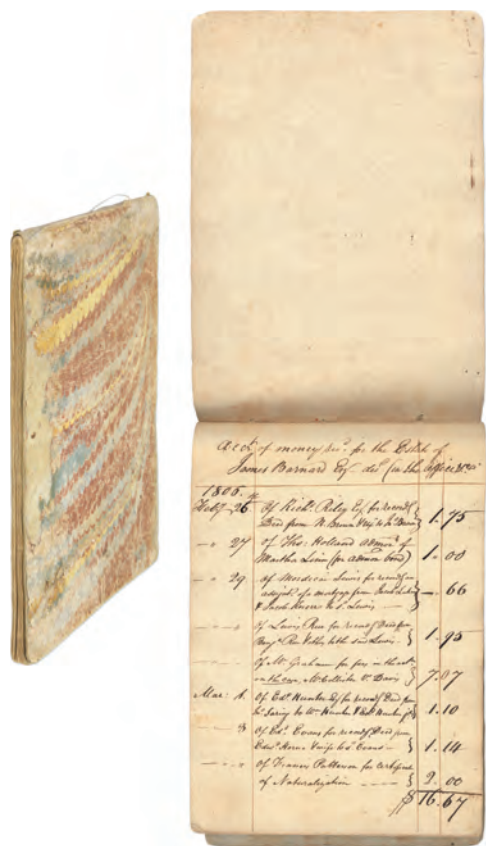 Acct. of money recd. for the Estate of
James Barnard Esq. decd. (in the office &c.)
1806.
Feby. 26th Of Richd. Riley Esq. for recordg. 
Deed from N. Brown & wife to 1. 75
— " 27 Of Thos. Holland admor. of
Martha Levis (for admon bond) 1. 00
— " 29 Of Mordecai Lewis for recordg. an
assignt. of a mortgage from
& Jacob to s. Lewis — —. 66
— — " Of Lewis Rue for recordg. Deed from
Benj. Rue & others to the said Lewis. 1. 95
— — Of Mr. Graham for fees in the
in the case, McClellan v. Davis 7. 07
Mar: 1. Of Edd. Hunter Esq. for recordg. Deed from
to Wm. Hunter & Edd. Hunter 1. 10
— 3 Of Edd. Evans for recordg. Deed from
Edwd. Horne & wife to sd. Evans — 1. 14
— — " Of Francis Patterson for certificate
of Naturalization — — — 2. 00
$ 16. 67